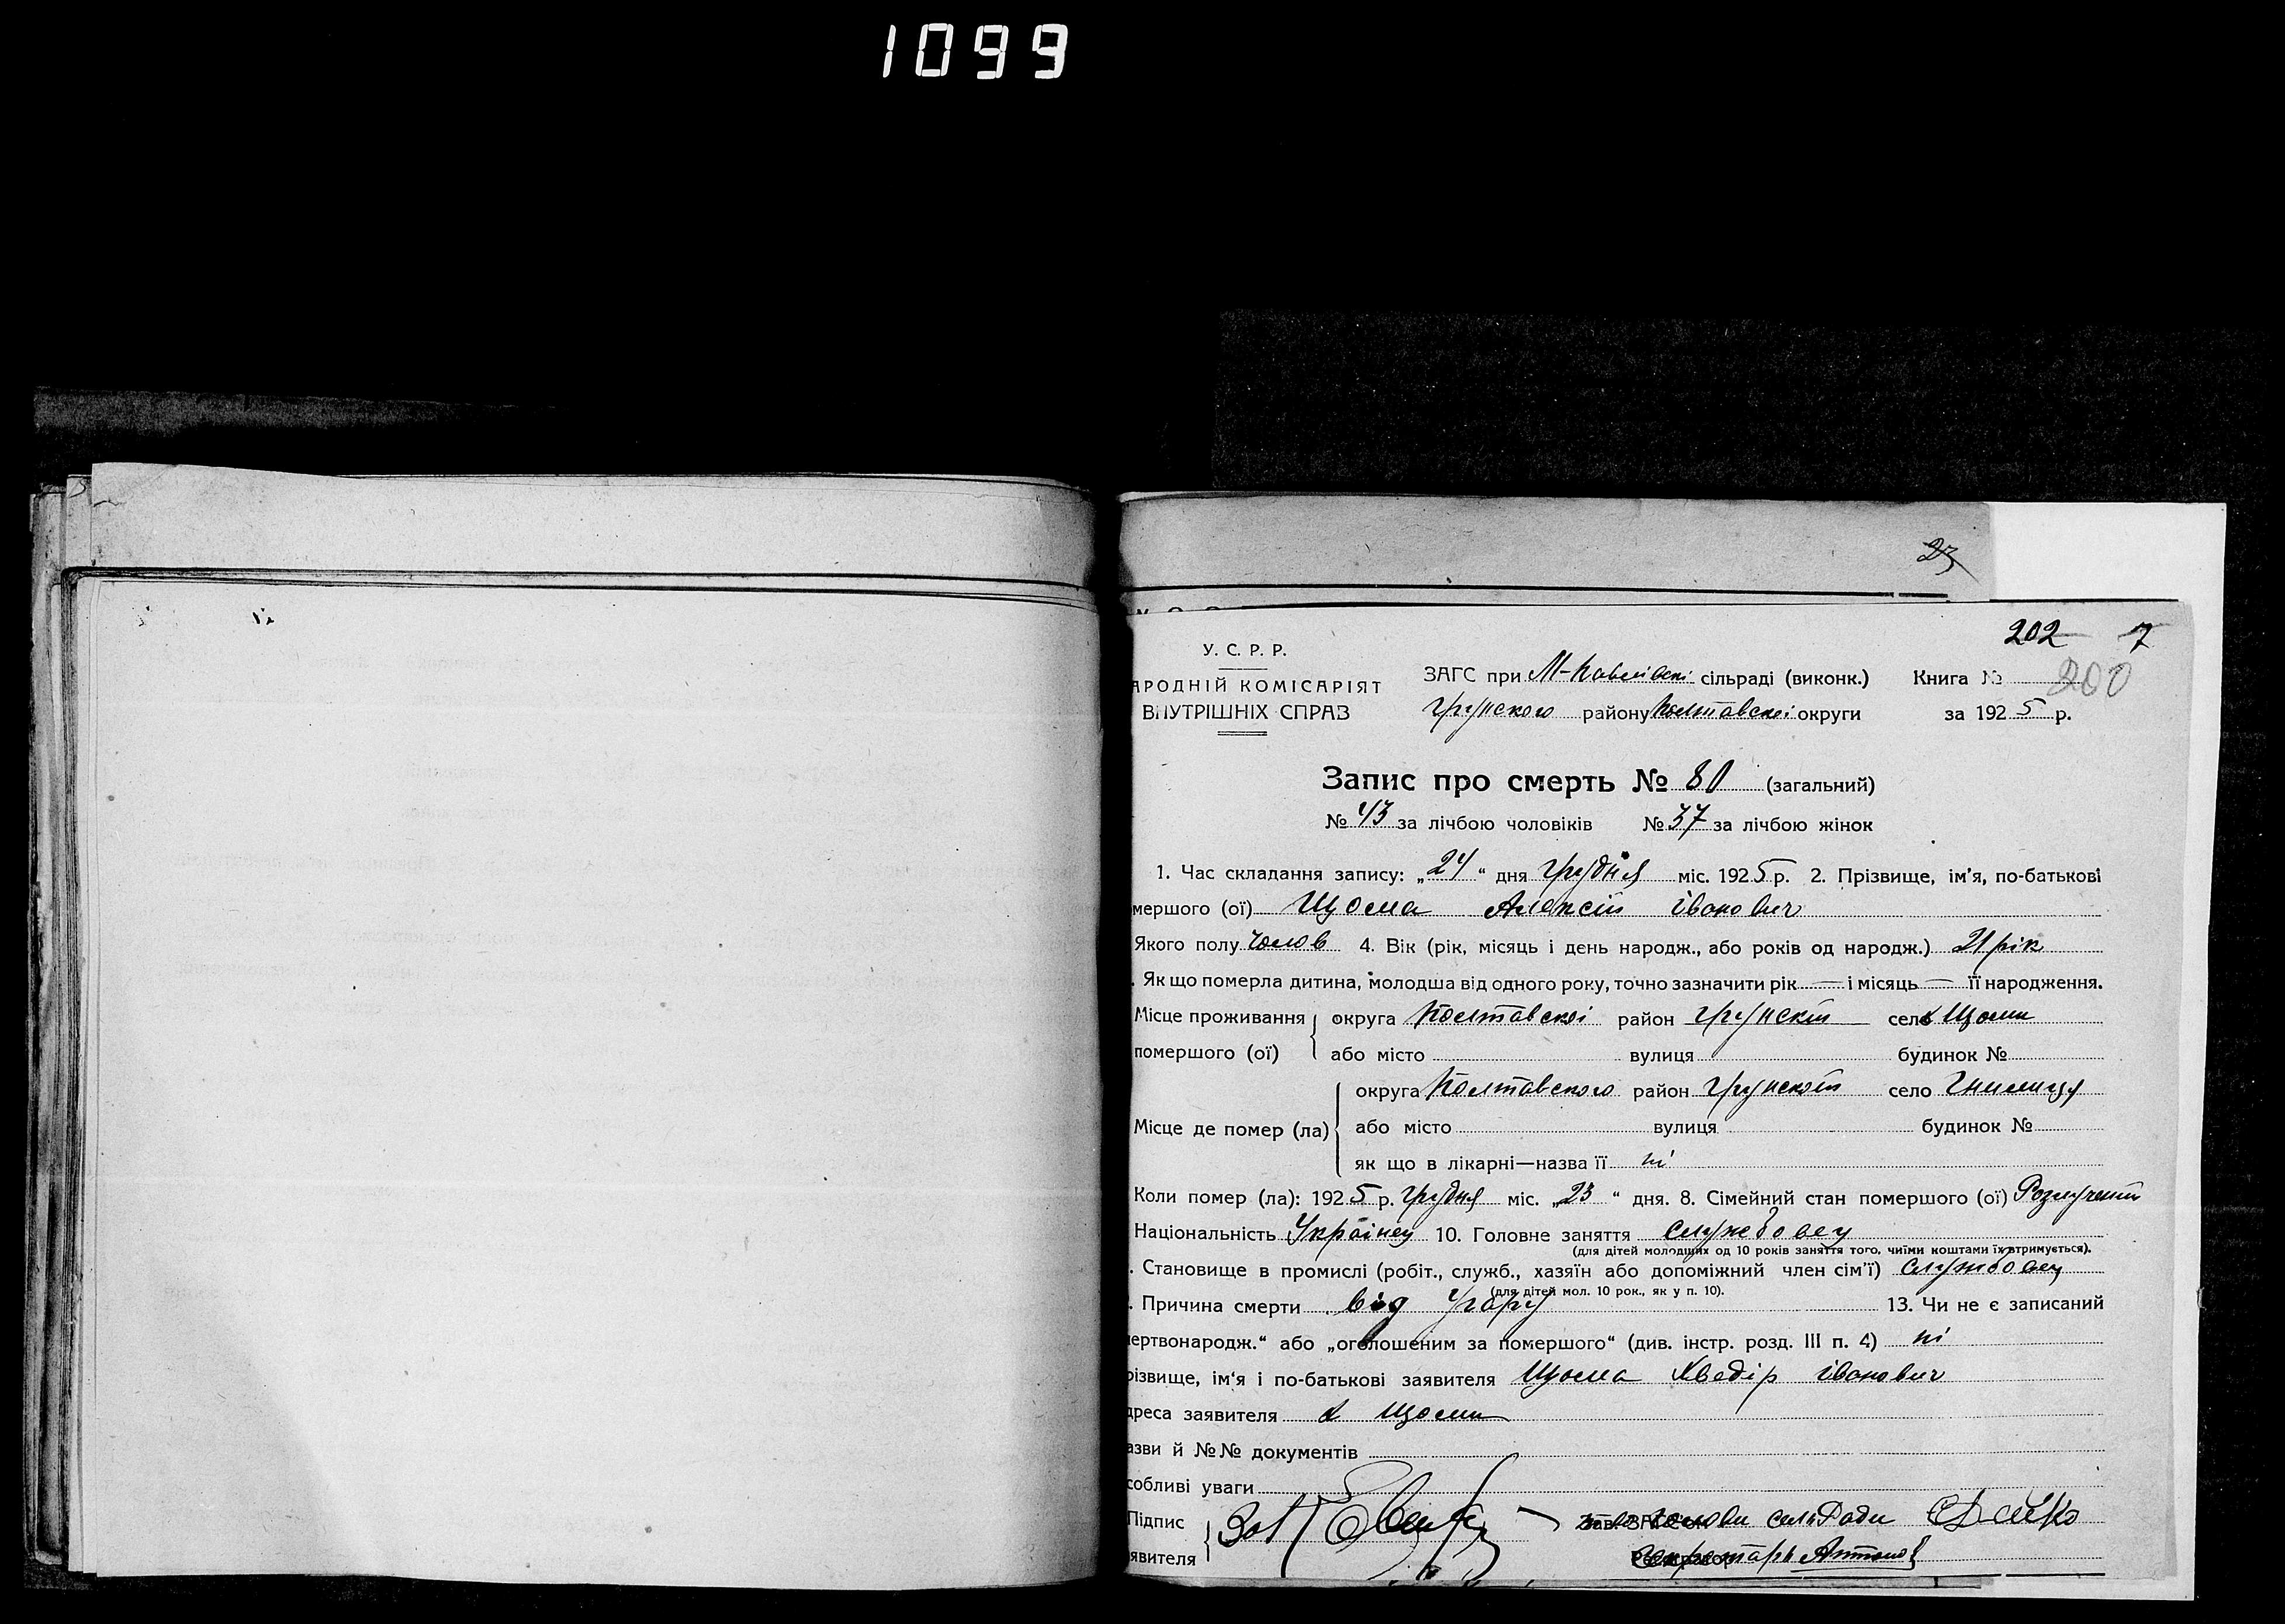 1099
23
202 7
У. С. Р. Р.
200
АРОДНІЙ КОМІСАРІЯТ
ВНУТРІШНІХ СПРАВ
ЗАГС при М-Павлівскі сільраді (виконк.) Книга №
Грунского району Полтавскої округи за 1925 р.
Запис про смерть № 80 (загальний)
№ 43 за лічбою чоловіків № 37 за лічбою жінок
1. Час складання запису: „24“ дня грудня міс. 1925 р. 2. Прізвище, ім'я, по-батькові
мершого (ої) Щома Алексій Іванович
Якого полу Чолов 4. Вік (рік, місяць і день народж., або років од народж.) 21 рік
. Як що померла дитина, молодша від одного року, точно зазначити рік — і місяць — її народження.
Місце проживання округа Полтавскої район Грунский село х Щоми
помершого (ої) або місто вулиця будинок №
округа Полтавского район Грунский село Гнилицу
Місце де помер (ла) або місто вулиця будинок №
як що в лікарні—назва її ні
Коли помер (ла): 1925 р. грудня міс. „23“ дня. 8. Сімейний стан помершого (ої)
Національність Українец 10. Головне заняття службовец
(для дітей молодших од 10 років заняття того, чиїми коштами їх втримується).
. Становище в промислі (робіт., служб., хазяїн або допоміжний член сім'ї) службовец
(для дітей мол. 10 рок., як у п. 10).
. Причина смерти від Угару 13. Чи не є записаний
ертвонародж.“ або „оголошеним за помершого“ (див. інстр. розд. III п. 4) ні
різвище, ім'я і по-батькові заявителя Щома Хведір Іванович
дреса заявителя х Щоми
азви й №№ документів
собливі уваги
Підпис голови сільРади
явителя Секретарь